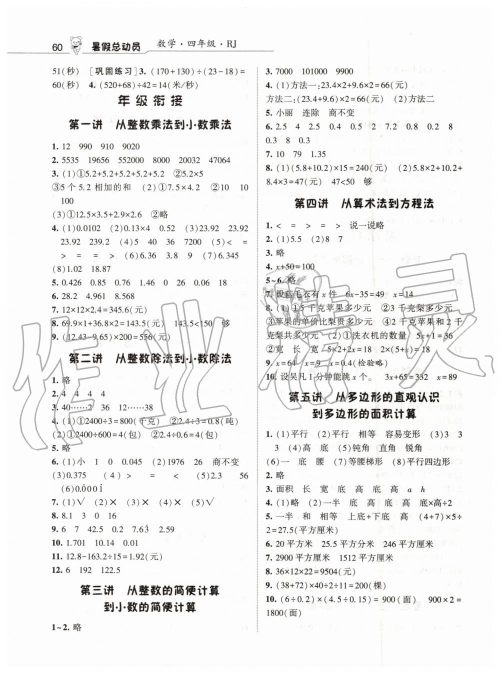 60 暑假总动员 数学·四年级·RJ
51(秒) [巩固练习] 3. (170+130)÷(23-18)=
60(秒) 4. (520+68)÷42=14(米/秒)
年级衔接
第一讲 从整数乘法到小数乘法
1. 12 990 910 9020
2. 5535 19656 552000 8000 20032 47064
3. (1)①5.2+5.2+5.2+5.2+5.2 ②5.2×5
③5个5.2相加的和 (2)①7.5×4.2 ②10 10
100
(3)①12.5×3.5+2.9×2.6 ②略
4. (1)0.0102 (2)0.13×4 0.52 (3)24.192
241.92 0.2419.2 (4)5 40 36 7200 (5)< =
> = = (6)9.38 (7)6 6.3 3.8 <
(8)1.02 18.87
5. 0.426 0.85 0.45 0.126 0.76 0.186
6. 28.2 4.961 8.568
7. 12×12×2.4=345.6(元)
8. 69.9×1+36.8×2=143.5(元) 143.5<150 够
9. (12.43-9.65)×200=556(元)
第二讲 从整数除法到小数除法
1. 略
2. 4 4 4 4
3. 40……2 36 12……38
4. (1)①2400÷3=800(千克) ②2.4÷3=0.8(吨)
(2)①2400÷600=4(包) ②2.4÷0.6=4(包)
5. 略
6. (1)24 1 0 0.045 (2)1976 26 商不变
(3)0.375 (4)> = < < (5)2.3 56
7. (1)√ (2)× (3)× (4)√ (5)×
8. 8.1 3 0 16
9. 6 7 42.5 0.2 7.63 21.5
10. 1.701 10.14 0.01
11. 12.8-163.2÷15=1.92(元)
12. 6 192 123
第三讲 从整数的简便计算
到小数的简便计算
1~2. 略
3. 7000 10991 100 4400
4. (1)方法一:23.4×2+9.6×2=66(元)
方法二:(23.4+9.6)×2=66(元) (2)方法二
5. 小丽 连除 商不变
6. 2.5 4 2.5 0.4 5 2 7.2 0.8 0.2 8
0.3 8 0.3
7. 10 79 1.35
8. (1)(5.8+10.2)×15=240(元) (2)(5.8+10.2+
8.4)×3=47(元) 47<50 够
第四讲 从算术法到方程法
1. < = > = > 说一说略
2. (1)5.5 (2)8 7
3. 略
4. x+50=100
5~6. 略
8. ①5千克苹果多少元 ②3千克梨多少元
③苹果的单价比梨贵多少元 ④2千克苹果和2千克
梨共多少元 (2)①洗衣机的数量 5x+1=36
②宽 长 宽 5×2+2x=18 2×(5+x)=18
9. x=64 x=9 x=0.4(检验略)
第五讲 从多边形的直观认识
到多边形的面积计算
1. (1)平行 (2)平行 相等 容易变形 (3)3
3 (4)2 8 (5)钝角 直角 锐角
(6)一 底 腰 (7)等腰梯形 (8)平行四边形
2. 略
3. 面积 长 宽 底 高 底 高 a h
4. (1)略 (2)一半 底 高 底 高
5. 一半 和 相等 上底+下底 高 (4+7)×5
÷2=27.5(平方厘米)
6. 20平方米 25.5平方分米 246平方厘米
7. 2900平方厘米 1512平方厘米
8. 36×12×22=9504(元)
9. (38+72)×40÷11÷2=200(棵)
10. (6÷0.2)×(4.5÷0.15)=900(面) 900×2=
1800(面)